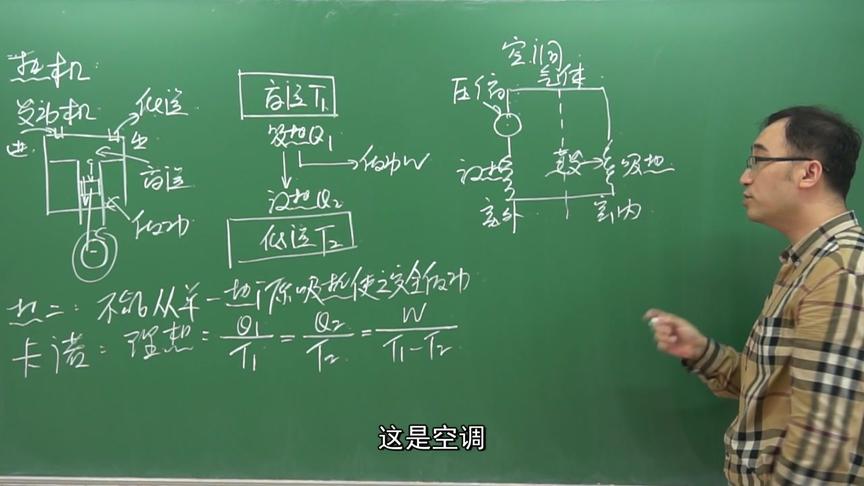 热机
发动机
低温
进
出
高温
做功
高温T₁
吸热Q₁
做功W
放热Q₂
低温T₂
空调
气体
压缩
放热
蒸发
吸热
室外
室内
热二：不能从单一热源吸热使之完全做功
卡诺：理想：Q₁/T₁ = Q₂/T₂ = W/(T₁-T₂)
这是空调